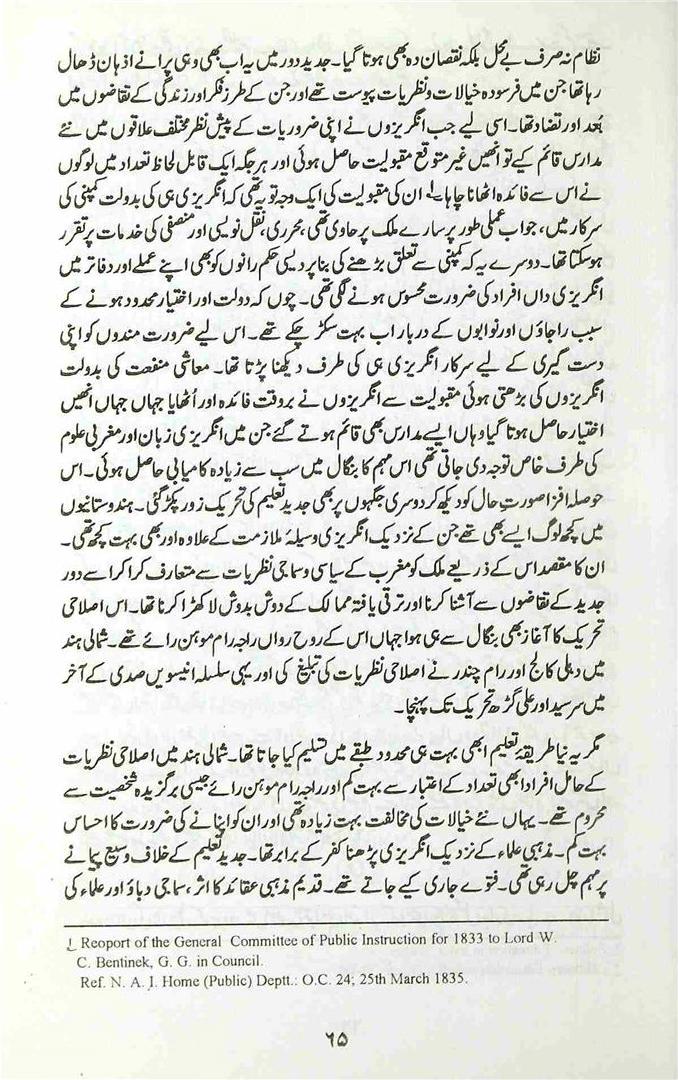 نظام نہ صرف بے محل بلکہ نقصان دہ بھی ہوتا گیا۔ جدید دور میں یہ اب بھی وہی پرانے اذہان ڈھال
رہا تھا جن میں فرسودہ خیالات و نظریات پیوست تھے اور جن کے طرز فکر اور زندگی کے تقاضوں میں
بُعد اور تضاد تھا۔ اسی لیے جب انگریزوں نے اپنی ضروریات کے پیش نظر مختلف علاقوں میں نئے
مدارس قائم کیے تو انھیں غیر متوقع مقبولیت حاصل ہوئی اور ہر جگہ ایک قابل لحاظ تعداد میں لوگوں
نے اس سے فائدہ اٹھانا چاہا۱؎ ان کی مقبولیت کی ایک وجہ تو یہ تھی کہ انگریزی ہی کی بدولت کمپنی کی
سرکار میں، جو اب عملی طور پر سارے ملک پر حاوی تھی، محرری، نقل نویسی اور منصفی کی خدمات پر تقرر
ہوسکتا تھا۔ دوسرے یہ کہ کمپنی سے تعلق بڑھنے کی بنا پر دیسی حکم رانوں کو بھی اپنے عملے اور دفاتر میں
انگریزی داں افراد کی ضرورت محسوس ہونے لگی تھی۔ چوں کہ دولت اور اختیار محدود ہونے کے
سبب راجاؤں اور نوابوں کے دربار اب بہت سکڑ چکے تھے۔ اس لیے ضرورت مندوں کو اپنی
دست گیری کے لیے سرکار انگریزی ہی کی طرف دیکھنا پڑتا تھا۔ معاشی منفعت کی بدولت
انگریزوں کی بڑھتی ہوئی مقبولیت سے انگریزوں نے بروقت فائدہ اور اُٹھایا جہاں جہاں انھیں
اختیار حاصل ہوتا گیا وہاں ایسے مدارس بھی قائم ہوتے گئے جن میں انگریزی زبان اور مغربی علوم
کی طرف خاص توجہ دی جاتی تھی اس مہم کا بنگال میں سب سے زیادہ کامیابی حاصل ہوئی۔ اس
حوصلہ افزا صورتِ حال کو دیکھ کر دوسری جگہوں پر بھی جدید تعلیم کی تحریک زور پکڑ گئی۔ ہندوستانیوں
میں کچھ لوگ ایسے بھی تھے جن کے نزدیک انگریزی وسیلۂ ملازمت کے علاوہ اور بھی بہت کچھ تھی۔
ان کا مقصد اس کے ذریعے ملک کو مغرب کے سیاسی و سماجی نظریات سے متعارف کرا کر اسے دور
جدید کے تقاضوں سے آشنا کرنا اور ترقی یافتہ ممالک کے دوش بدوش لا کھڑا کرنا تھا۔ اس اصلاحی
تحریک کا آغاز بھی بنگال سے ہی ہوا جہاں اس کے روح رواں راجہ رام موہن رائے تھے۔ شمالی ہند
میں دہلی کالج اور رام چندر نے اصلاحی نظریات کی تبلیغ کی اور یہی سلسلہ انیسویں صدی کے آخر
میں سرسید اور علی گڑھ تحریک تک پہنچا۔
مگر یہ نیا طریقۂ تعلیم ابھی بہت ہی محدود طبقے میں تسلیم کیا جاتا تھا۔ شمالی ہند میں اصلاحی نظریات
کے حامل افراد ابھی تعداد کے اعتبار سے بہت کم اور راجہ رام موہن رائے جیسی برگزیدہ شخصیت سے
محروم تھے۔ یہاں نئے خیالات کی مخالفت بہت زیادہ تھی اور ان کو اپنانے کی ضرورت کا احساس
بہت کم۔ مذہبی علماء کے نزدیک انگریزی پڑھنا کفر کے برابر تھا۔ جدید تعلیم کے خلاف وسیع پیمانے
پر مہم چل رہی تھی۔ فتوے جاری کیے جاتے تھے۔ قدیم مذہبی عقائد کا اثر، سماجی دباؤ اور علماء کی
۱؎ Reoport of the General Committee of Public Instruction for 1833 to Lord W.
C. Bentinek, G. G. in Council.
Ref. N. A. I. Home (Public) Deptt.: O.C. 24; 25th March 1835.
۶۵